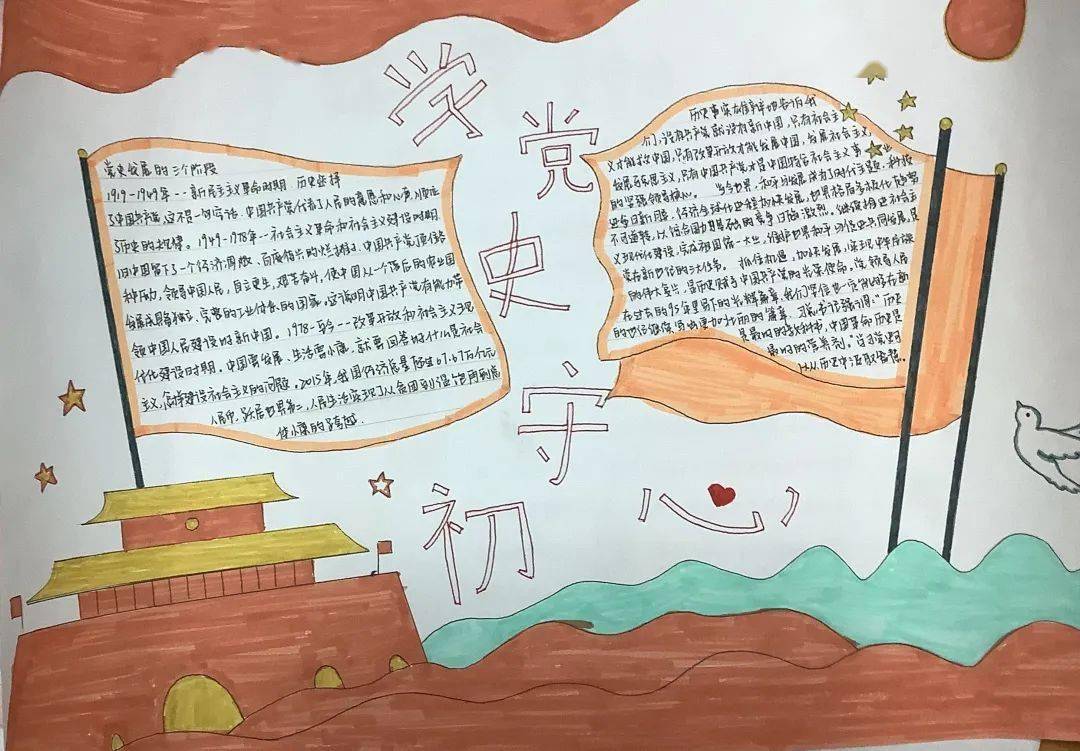 学
党
史
守
初
心
党史发展的三个阶段
1919-1949年--新民主主义革命时期，历史选择
了中国共产党，这不是一句空话，中国共产党代表了人民的意愿和心声，顺应
了历史的规律。1949-1978年--社会主义革命和社会主义建设时期，
旧中国留下了一个经济凋敝、百废待兴的烂摊子，中国共产党，顶住各
种压力，领导中国人民，自立更生，艰苦奋斗，使中国从一个落后的农业国
发展成为独立、完整的工业体系的国家，这说明中国共产党有能力带
领中国人民建设好新中国。1978-至今--改革开放和社会主义现
代化建设时期，中国要发展、生活要小康，就要回答好什么是社会
主义，怎样建设社会主义的问题，2015年，我国经济总量超过67.67万亿元
人民币，跃居世界第二，人民生活实现了从贫困到温饱再到总
体小康的跨越.
历史事实雄辩地告诉我
们，没有共产党就没有新中国，只有社会主
义才能救中国，只有改革开放才能发展中国，发展社会主义，
发展马克思主义，只有中国共产党才是中国特色社会主义事业
的坚强领导核心。 当今世界，和平与发展成为了时代主题，科技
不可逆转，以综合国力为基础的竞争日益激烈。继续推进社会主
义现代化建设，完成祖国统一大业，维护世界和平与促进共同发展，是
党在新世纪的三大任务。 抓住机遇，加快发展，实现中华民族
的伟大复兴，是历史赋予中国共产党的光荣使命。
在过去的95年里写下的光辉篇章，我们坚信也一定能够在新
的世纪继续谱写更加壮丽的篇章。习总书记强调："历史
是最好的教科书，中国革命历史是
最好的营养剂。"
从历史中汲取智慧。